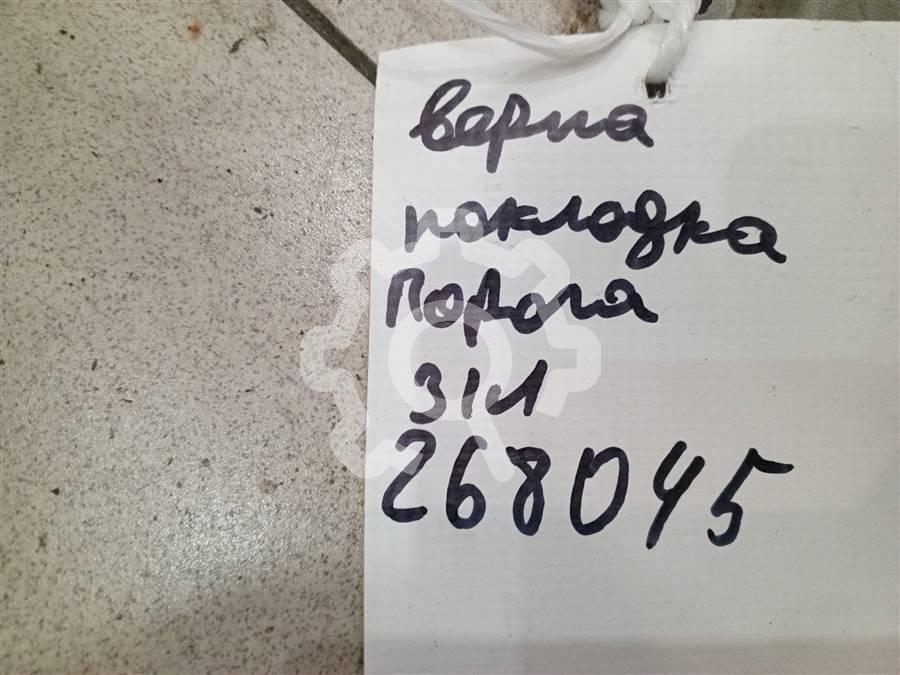 Верна
покладка
порога
З/Л
268045